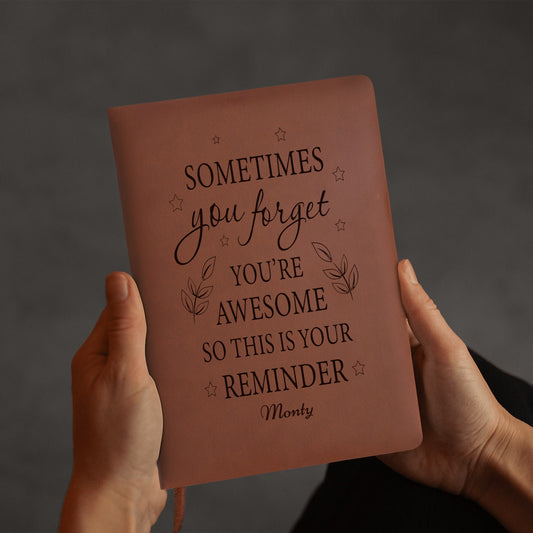 SOMETIMES
you forget
YOU'RE
AWESOME
SO THIS IS YOUR
REMINDER
Monty